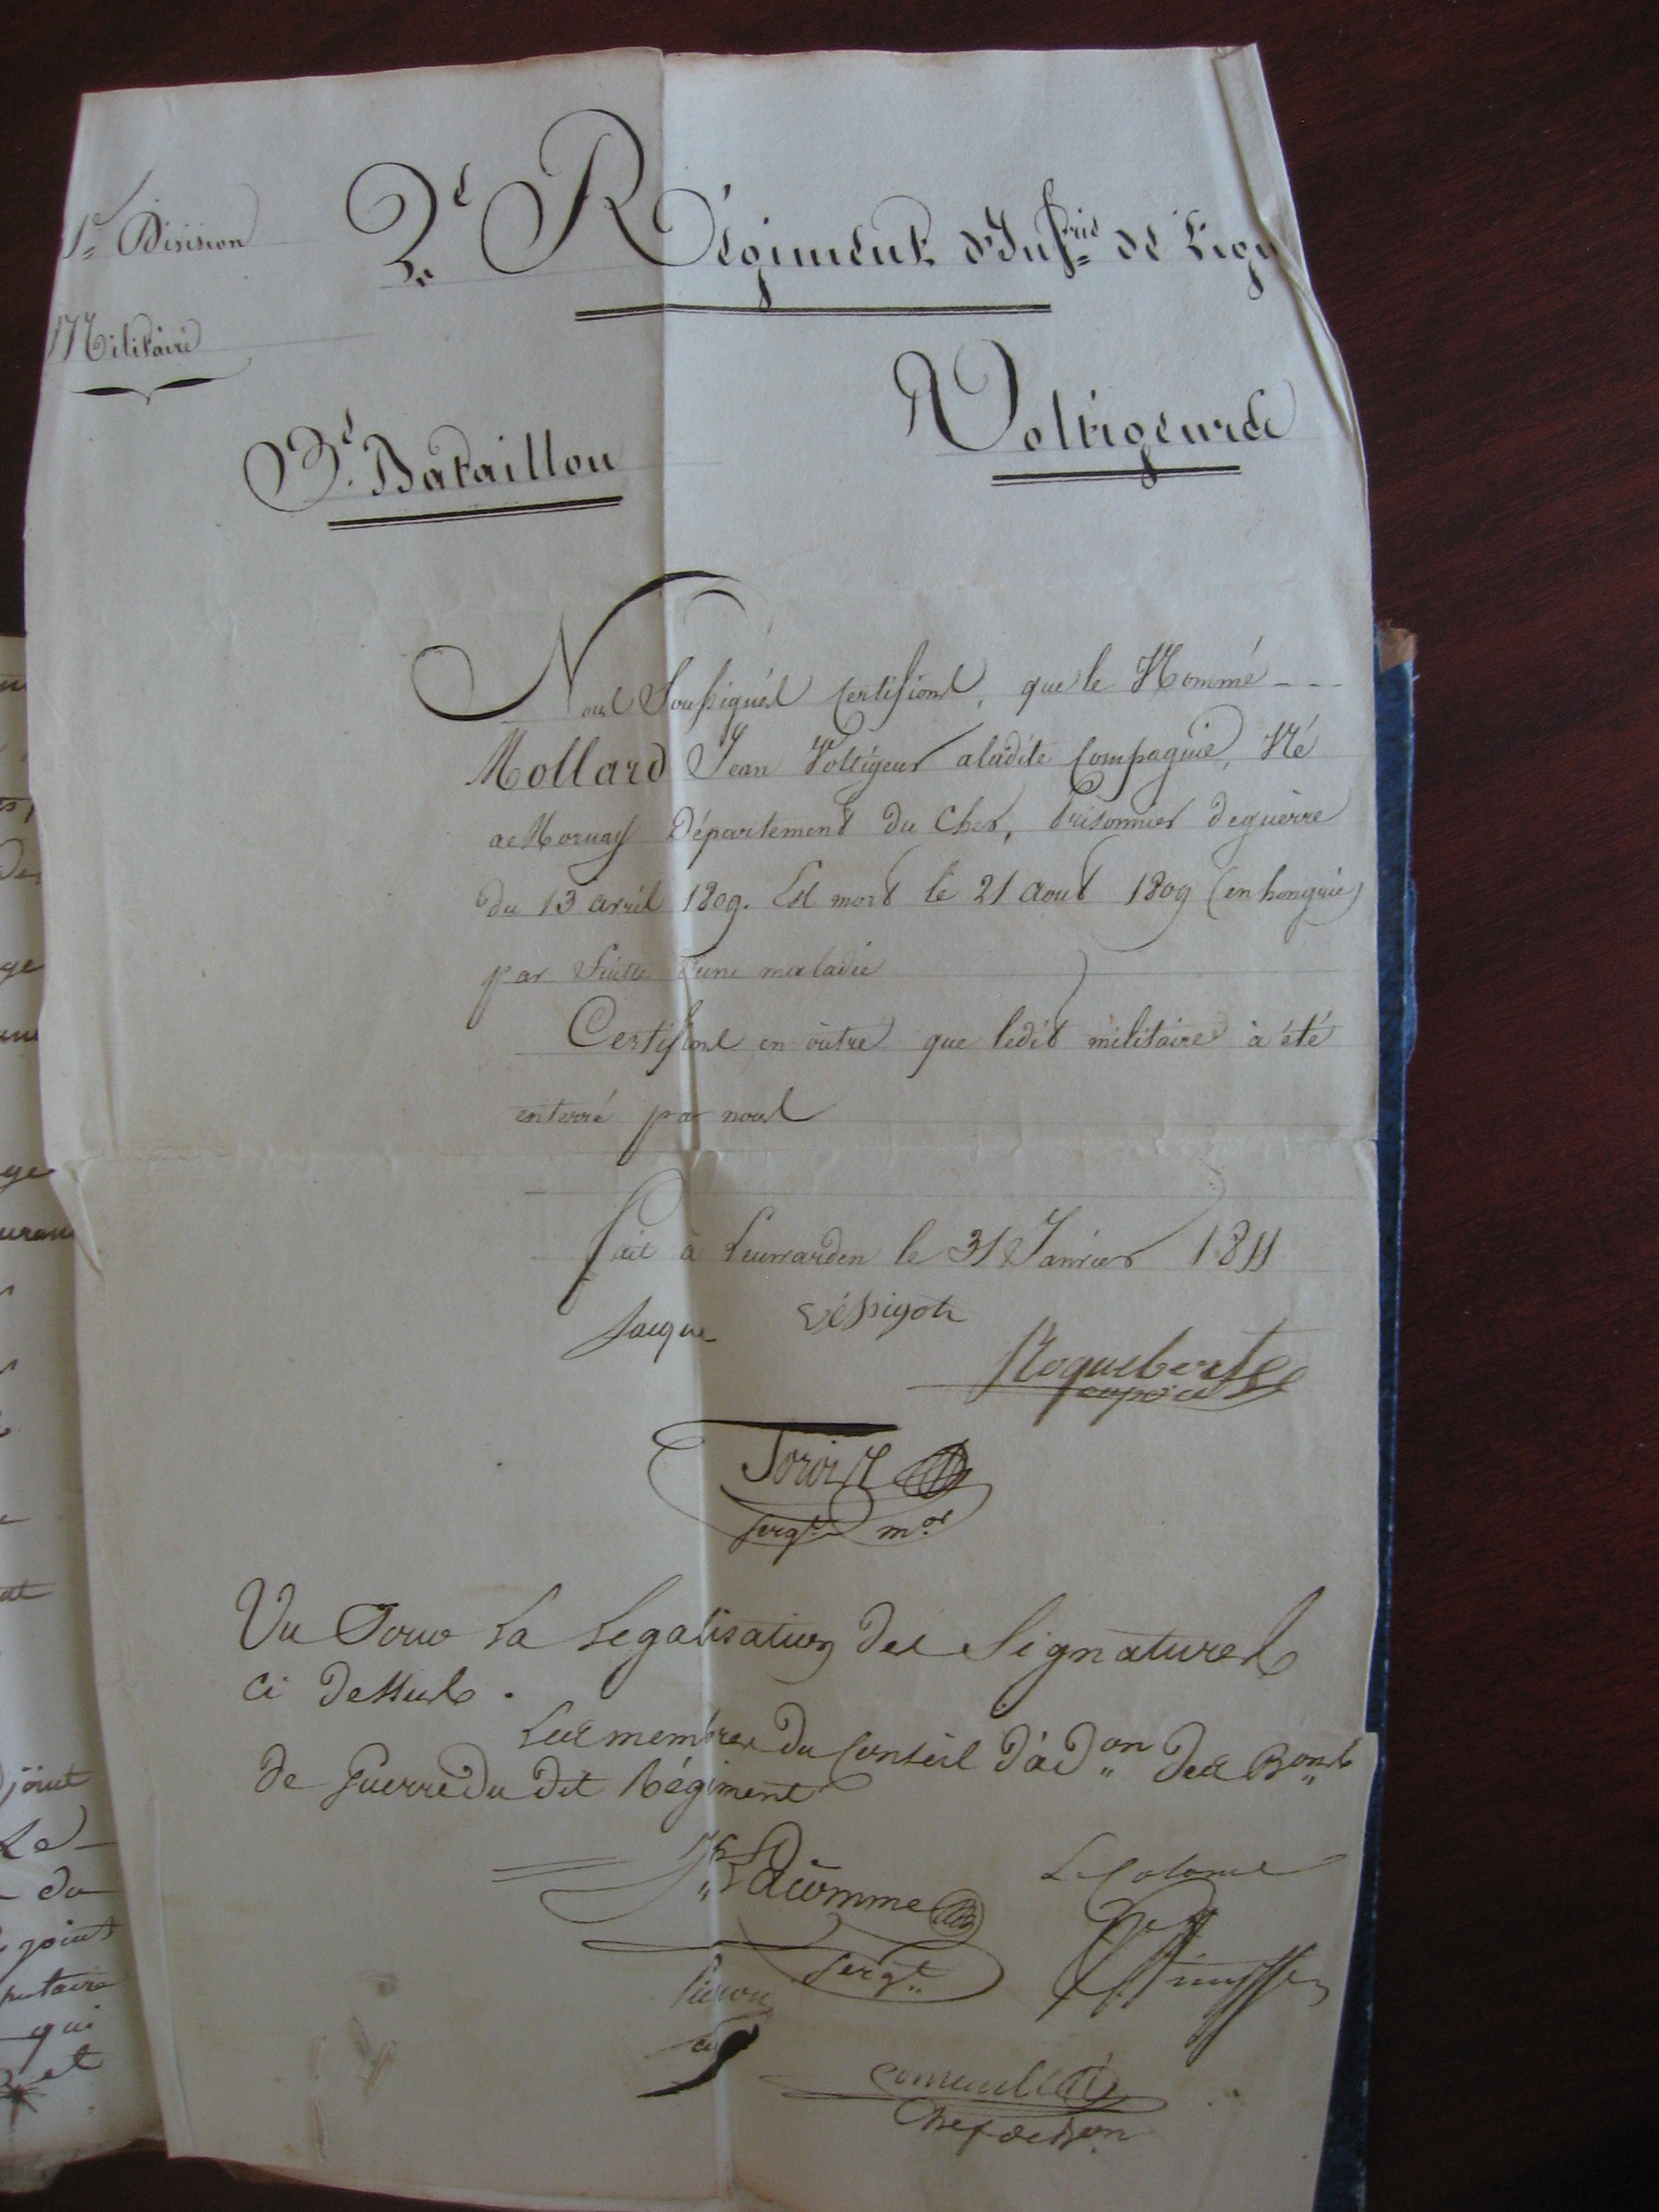 1re Division
Militaire
2e Régiment d'Infrie de Lign
3e Bataillon
Voltigeurs
Nous Soussignés Certifions, que le Nommé - - -
Mollard Jean Voltigeur aladite Compagnie, Né
a Mornay Département du Cher, Prisonnier deguerre
du 13 avril 1809. Est mort le 21 aout 1809 (en hongrie)
par Suitte d'une maladie
Certifions en outre que ledit militaire à été
enterré par nous
fait à Leuwarden le 31 Janvier 1811
Jacque
Roquebert
caporal
sergt mor
Vu Pour La Legalisation des Signatures
ci dessus.
Les membres du Conseil d'adon des Bons
de Guerre du dit Régiment
Lacomme
Sergt
Le Colonel
Chef de Bon
joint
Le
du
joint
qui
et